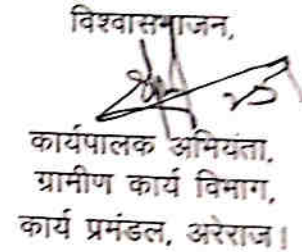 विश्वासभाजन,
कार्यपालक अभियंता,
ग्रामीण कार्य विभाग,
कार्य प्रमंडल, अरेराज।